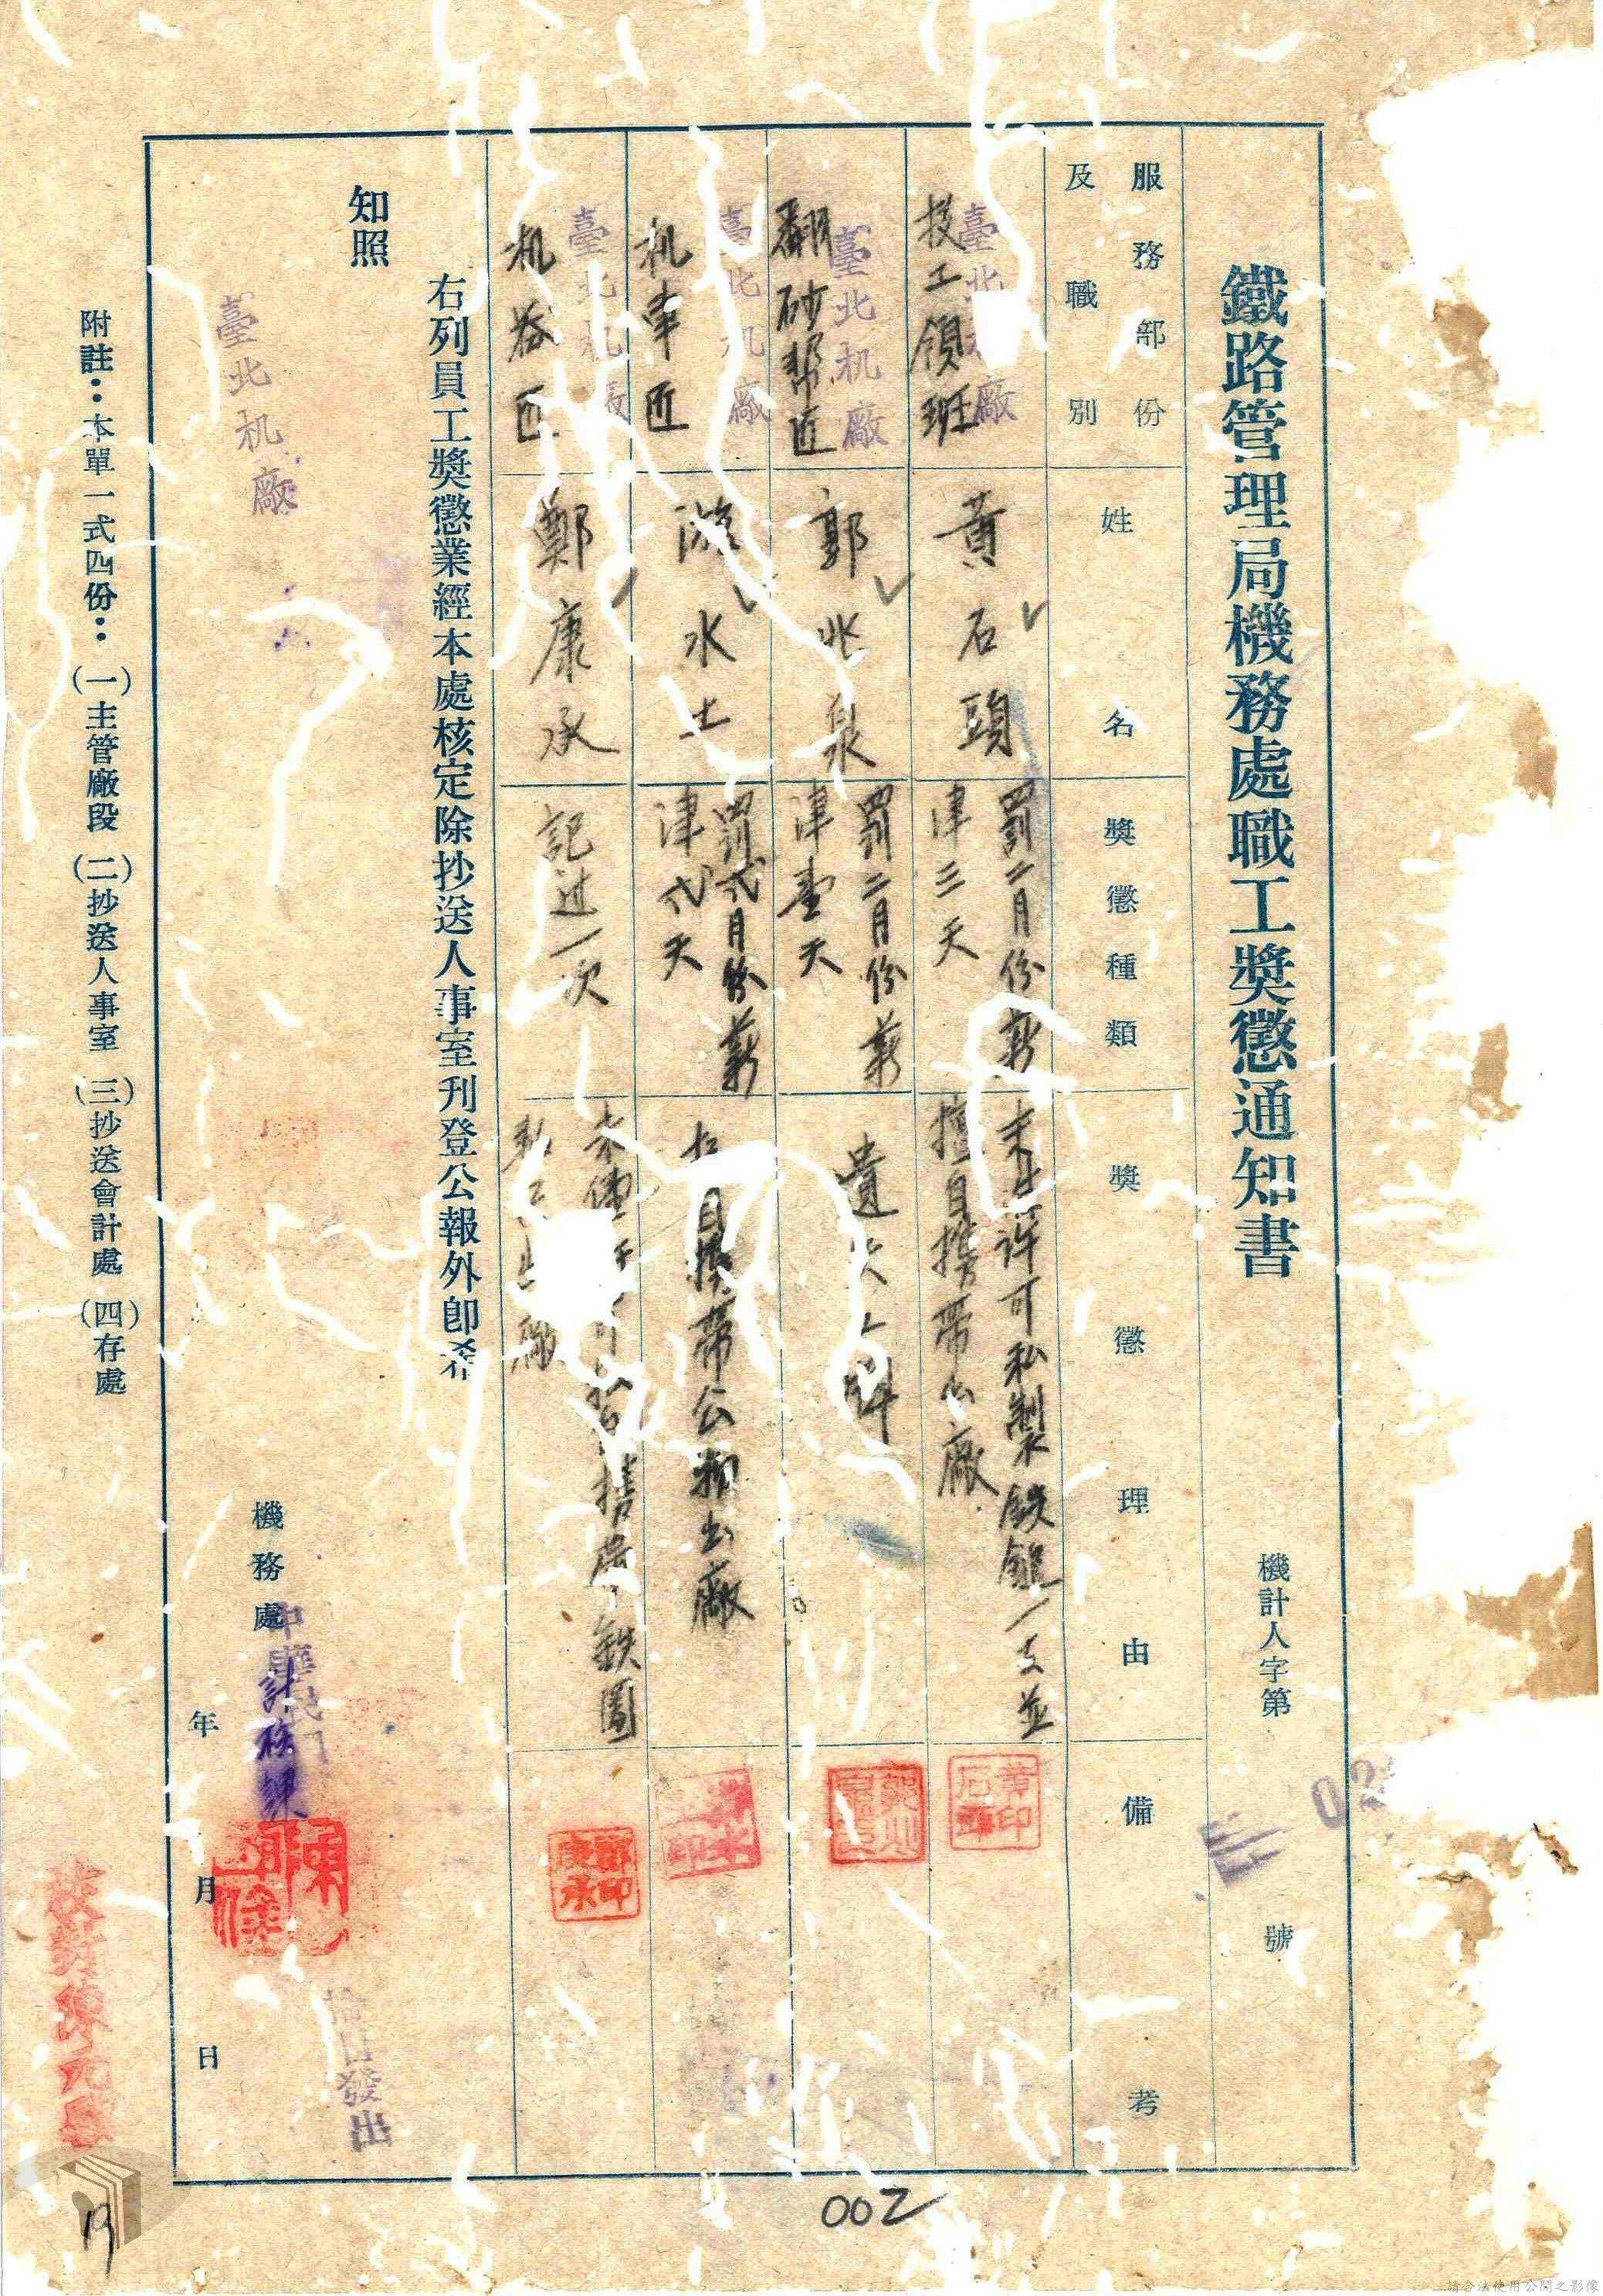 鐵路管理局機務處職工獎懲通知書
機計人字第 號
服務部份
及職別
姓名
獎懲種類
獎懲理由
備考
臺北机廠
技工領班
黃石頭
罰二月份薪
津三天
未 許可私製鉄鎚一支並
擅自携帶出廠
黃印石頭
臺北机廠
翻砂幫匠
郭兆泉
罰二月份薪
津壹天
遺失 料
臺北机廠
机車匠
游水土
罰弍月份薪
津弍天
自携帶公物出廠
臺北机廠
机器匠
鄭康承
記过一次
未 携帶鉄圈
廠
鄭印康承
右列員工獎懲業經本處核定除抄送人事室刊登公報外卽希
知照
臺北机廠
機務處
計核課
年 月 日
日發出
附註：本單一式四份：(一)主管廠段 (二)抄送人事室 (三)抄送會計處 (四)存處
002
19
請合法使用公開之影像